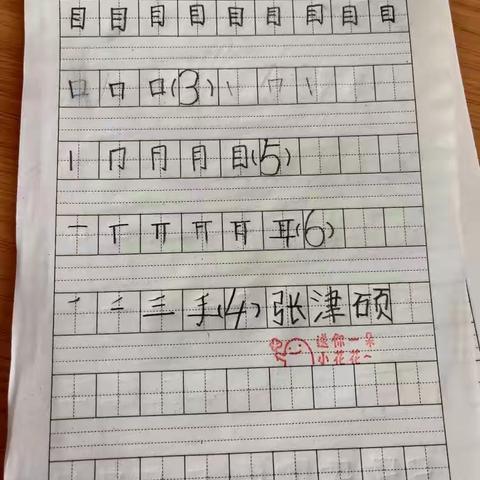 目 目 目 目 目 目 目 目 目
口 口(3)
丨 冂 月 月 目(5)
一 丅 丌 耳(6)
一 二 三 手(4) 张津硕
送你一朵
小花花~